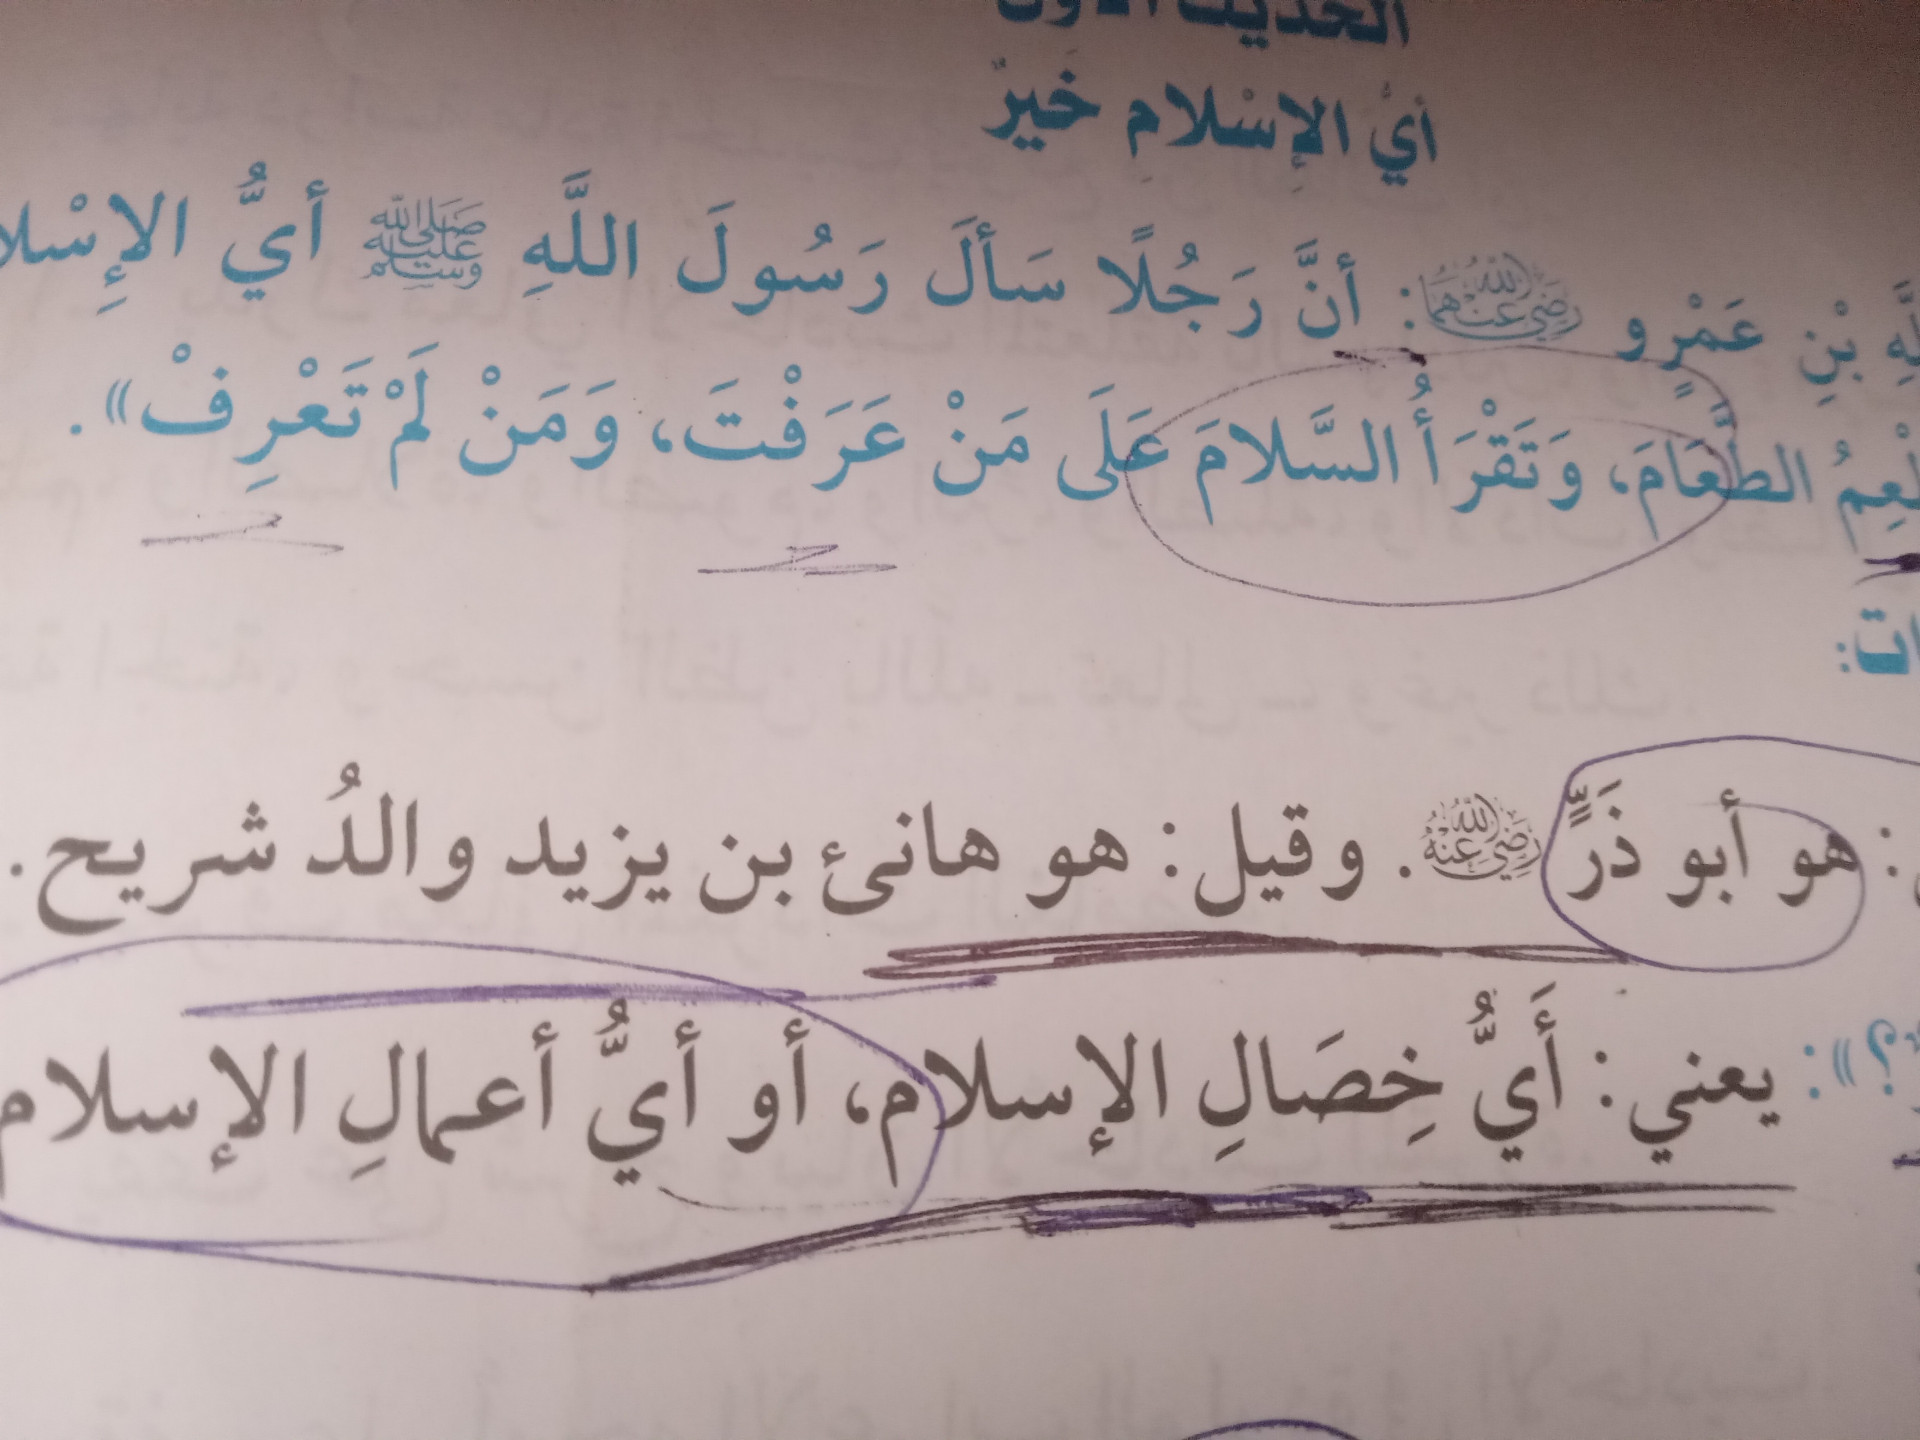 الحديث الأول
أيُّ الإِسْلامِ خَيرٌ
بْنِ عَمْرٍو رضي الله عنهما: أنَّ رَجُلًا سَألَ رَسُولَ اللَّهِ ﷺ أيُّ الإِسْلا
الطَّعَامَ، وَتَقْرَأُ السَّلامَ عَلَى مَنْ عَرَفْتَ، وَمَنْ لَمْ تَعْرِفْ».
: هو أبو ذَرٍّ رضي الله عنه. وقيل: هو هانئ بن يزيد والدُ شريح.
؟»: يعني: أَيُّ خِصَالِ الإسلام، أو أيُّ أعمالِ الإسلام